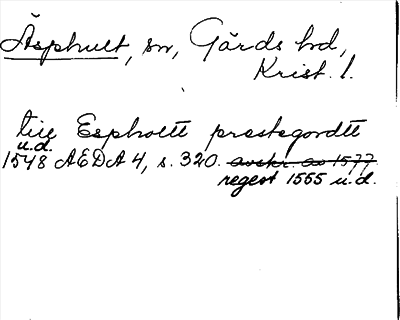 Äsphult, sn, Gärds hd,
Krist. l.
till Espholtt prestegordtt
u.d.
1548 AEDA 4, s. 320. avskr. av 1577
regest 1555 u.d.